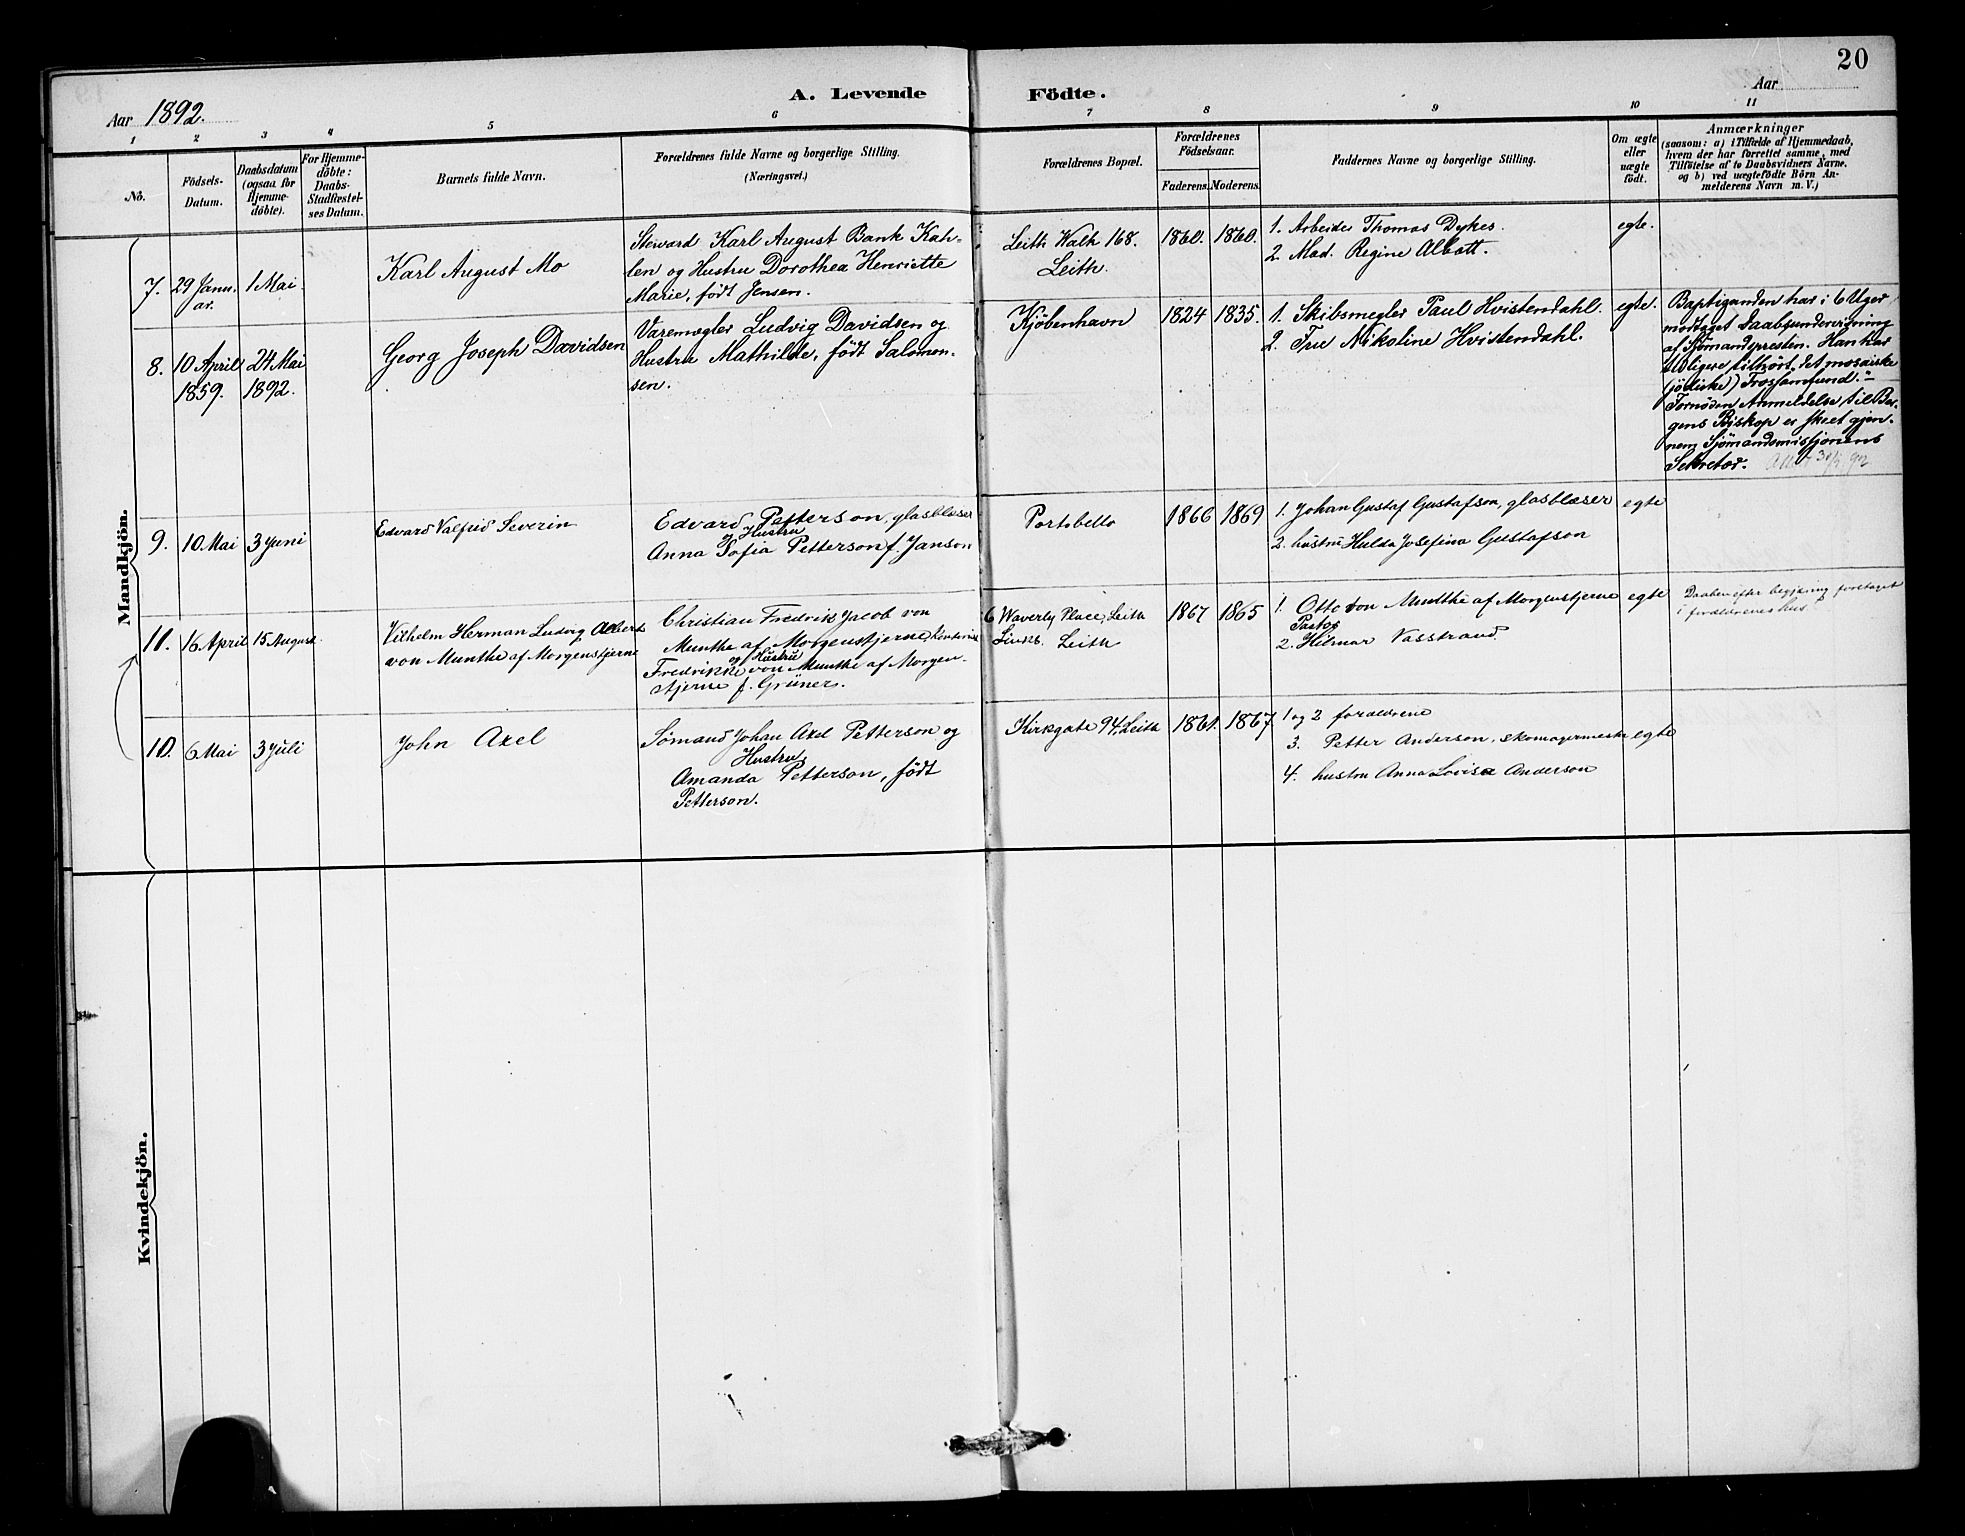 20
A. Levende Födte.
Aar 1892.
Aar
1 2 3 4 5 6 7 8 9 10 11
No.
Födsels-
Datum.
Daabsdatum
(ogsaa for
Hjemme-
döbte).
For Hjemme-
döbte:
Daabs-
Stadfæstel-
ses Datum.
Barnets fulde Navn.
Forældrenes fulde Navne og borgerlige Stilling.
(Næringsvei.)
Forældrenes Bopæl.
Forældrenes
Födselsaar.
Faderens. Moderens.
Faddernes Navne og borgerlige Stilling.
Om ægte
eller
uægte
födt.
Anmærkninger
(saasom: a) i Tilfælde af Hjemmedaab,
hvem der har forrettet samme, med
Tilföielse af to Daabsvidners Navne.
og b) ved uægtefödte Börn An-
melderens Navn m. V.)
Mandkjön.
7.
29 Janu.
ar.
1 Mai
Karl August Mo
Steward Karl August Bank Kah-
len og Hustru Dorothea Henriette
Marie, født Jensen.
Leith Walk 168.
Leith.
1860. 1860.
1. Arbeider Thomas Dykes.
2. Mad. Regine Albott.
egte.
8.
10 April
1859.
24 Mai
1892.
Georg Joseph Davidsen
Varemægler Ludvig Davidsen og
Hustru Mathilde, født Salomon-
sen.
Kjøbenhavn
1824 1835.
1. Skibsmegler Paul Hvistendahl.
2. Fru Nikoline Hvistendahl.
egte.
Baptizanden har i 6 Uger
modtaget Daabsundervisning
af Sjømandspresten. Han har
tidligere tilhørt det mosaiske
(jødiske) Trossamfund.
Fornøden Anmeldelse til Ber-
gens Biskop er skeet gjen-
nem Sjømandsmissjonens
Sekretær.
9.
10 Mai
3 Juni
Edvard Valfrid Severin
Edvard Petterson, glasblæser
og Hustru
Anna Sofia Petterson f. Janson
Portobello
1866 1869
1. Johan Gustaf Gustafson, glasblæser
2. hustru Hulda Josefina Gustafson
egte
11.
16 April
15 August
Vilhelm Herman Ludvig Albert
von Munthe af Morgenstjerne
Christian Fredrik Jacob von
Munthe af Morgenstjerne,
og Hustru
Fredrikke von Munthe af Morgen-
stjerne f. Grüner.
6 Waverly Place, Leith
Links. Leith
1867 1865
1. Otto von Munthe af Morgenstjerne
Pastor
2. Hilmar Vasstrand
egte
Daaben efter begjæring foretaget
i forældrenes hus
10.
6 Mai
3 Juli
John Axel
Sømand Johan Axel Petterson og
Hustru
Amanda Petterson, født
Petterson.
Kirkgate 94, Leith
1861. 1867.
1 og 2 forældrene
3. Petter Anderson, skomagermester
4. hustru Anna Lovisa Anderson
egte
Kvindekjön.